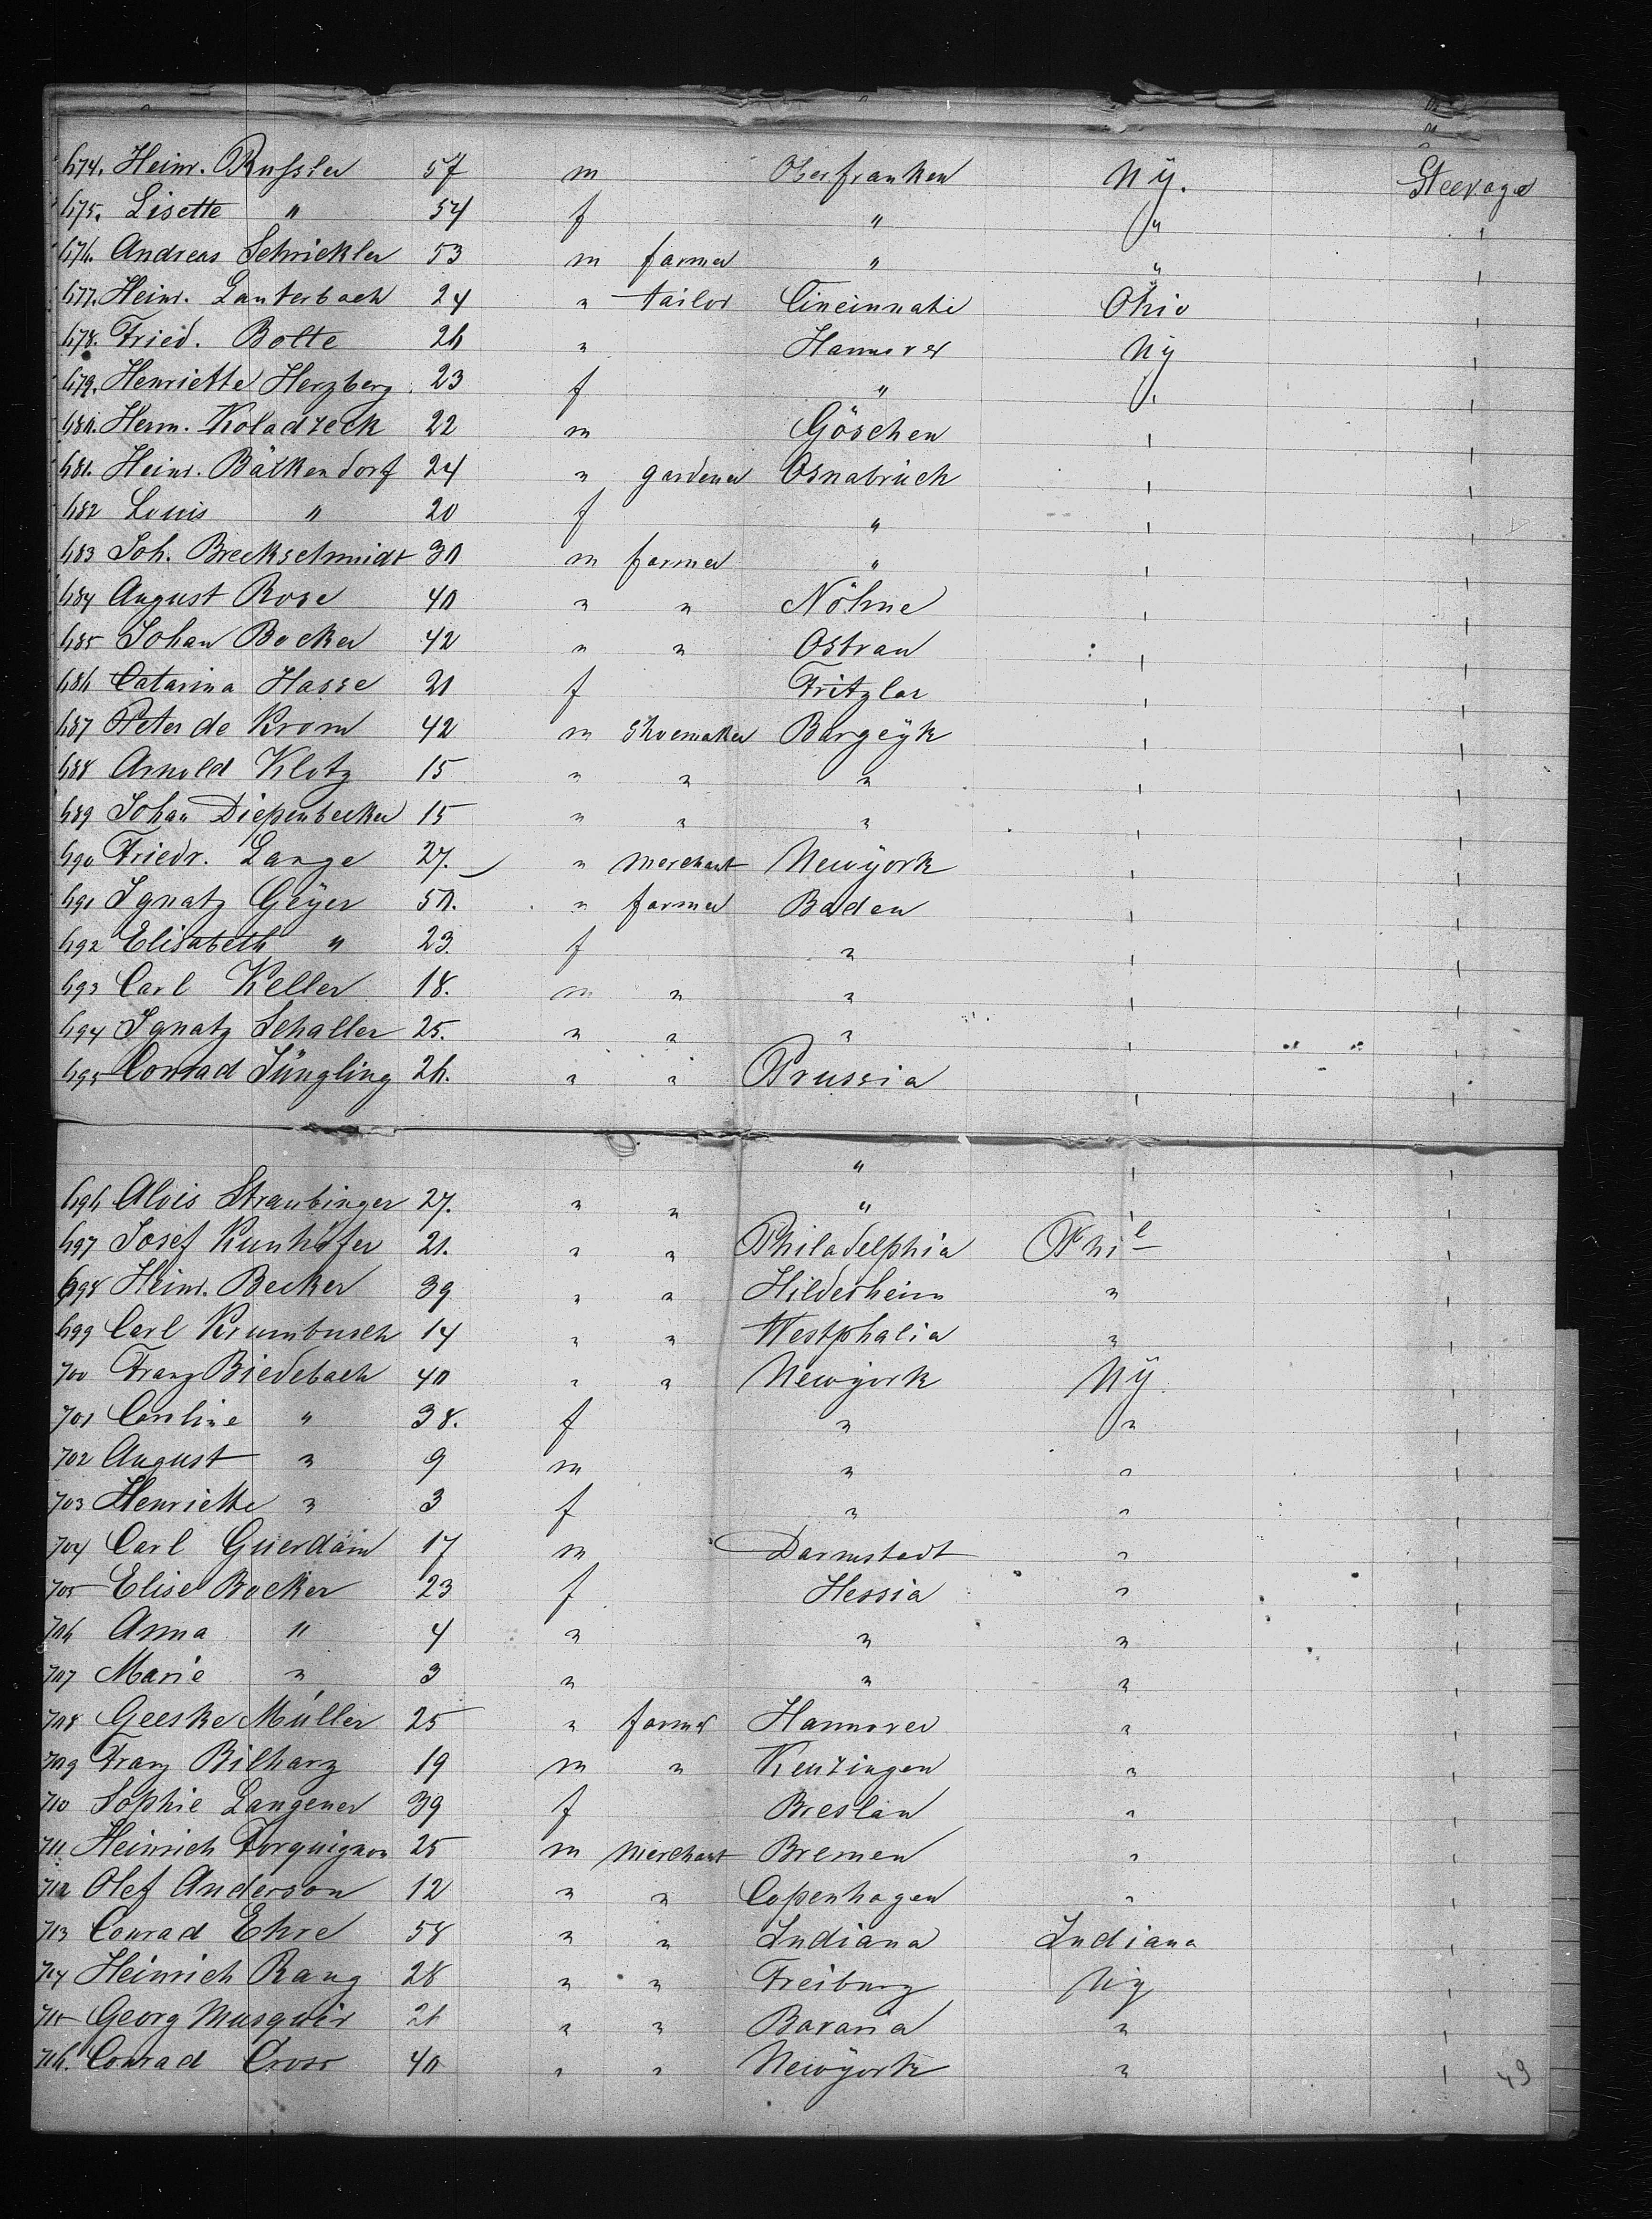 674. Heinr. Russler 57 m Oberfranken Ny. Steerage
675. Lisette " 54 f " "
676. Andreas Schrickler 53 m farmer " "
677. Heinr. Lauterbach 24 " tailor Cincinnati Ohio
678. Fried. Bolte 26 " Hannover Ny
679. Henriette Herzberg 23 f " "
680. Herm. Koladzeck 22 m Göschen
681. Heinr. Bäkkendorf 24 " gardener Osnabrück
682 Louis " 20 f "
683 Joh. Breckschmidt 30 m farmer "
684 August Rose 40 " " Nöhne
685 Johan Bocker 42 " " Ostrau
686 Catarina Hasse 21 f Fritzlar
687 Peter de Krom 42 m Shoemaker Bargeyk
688 Arnold Klotz 15 " " "
689 Johan Diepenbecker 15 " " "
690 Friedr. Lange 27. " Merchant Newyork
691 Ignatz Geyer 50. " farmer Baden
692 Elisabeth " 23. f "
693 Carl Keller 18. m " "
694 Ignatz Schaller 25. " " "
695 Conrad Jüngling 26. " " Prussia
"
696 Alois Straubinger 27. " " "
697 Josef Kunhöfer 21. " " Philadelphia Phil
698 Heinr. Becker 39 " " Hildesheim "
699 Carl Krumbusch 14 " " Westphalia "
700 Franz Biedebach 40 " " Newyork Ny
701 Carline " 38. f " "
702 August " 9 m " "
703 Henriette " 3 f " "
704 Carl Guerdain 17 m Darmstadt "
705 Elise Bocker 23 f Hessia "
706 Anna " 4 " " "
707 Marie " 3 " " "
708 Geeske Müller 25 " farmer Hannover "
709 Franz Bilharz 19 m " Kenzingen "
710 Sophie Langener 39 f Breslau "
711 Heinrich Forquignon 25 m Merchant Bremen "
712 Olef Anderson 12 " " Copenhagen "
713 Conrad Ehre 58 " " Indiana Indiana
714 Heinrich Rang 28 " " Freiburg Ny
715 Georg Musquir 26 " " Bavaria "
716. Conrad Cross 40 " " Newyork "
49